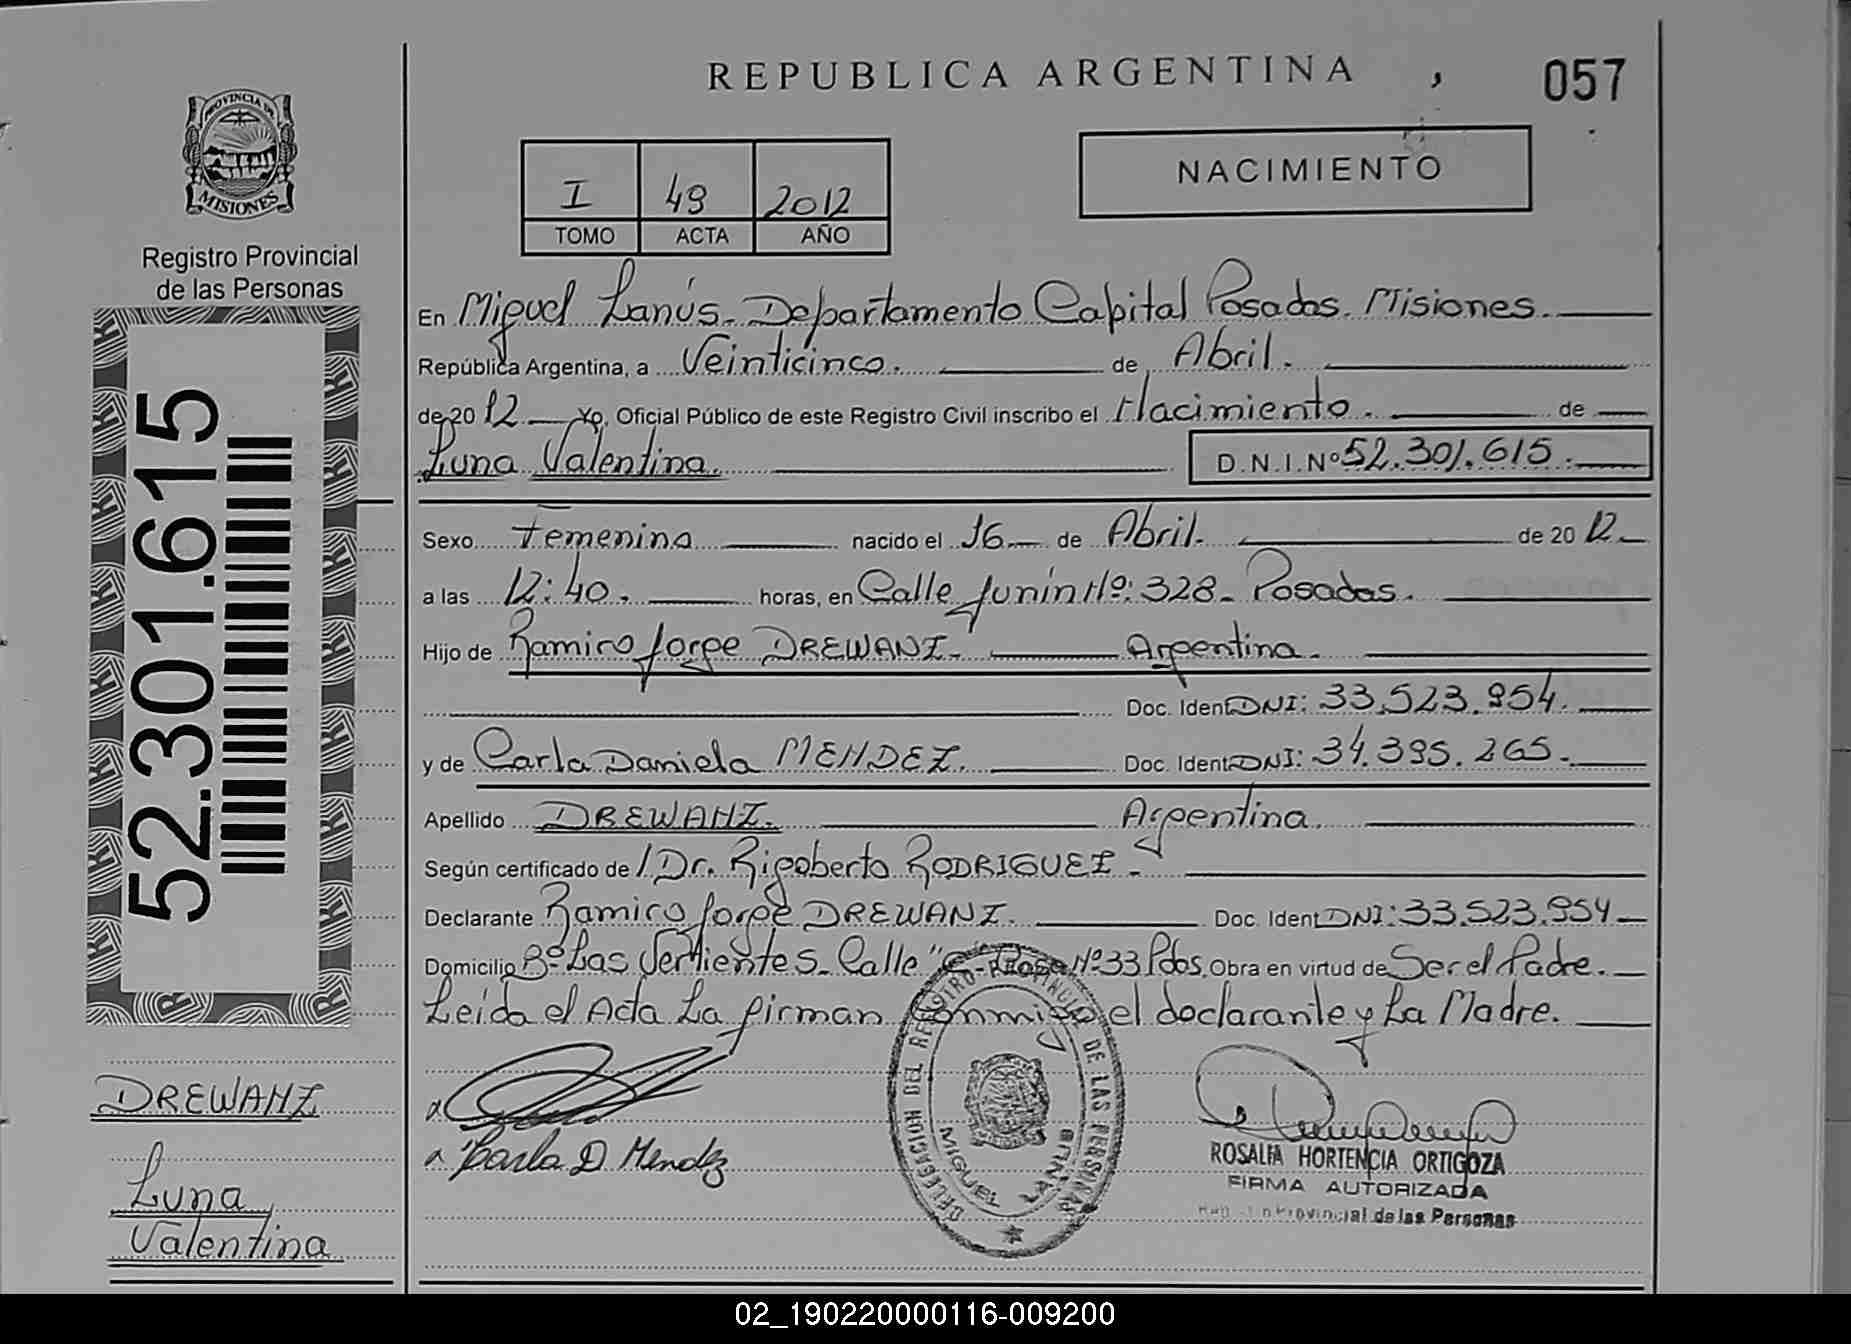 REPUBLICA ARGENTINA
057
PROVINCIA DE
MISIONES
Registro Provincial
de las Personas
I 49 2012
TOMO ACTA AÑO
NACIMIENTO
En Miguel Lanús. Departamento Capital Posadas. Misiones.
República Argentina, a Veinticinco. de Abril.
de 20 12 Yo, Oficial Público de este Registro Civil inscribo el Nacimiento. de
Luna Valentina. D.N.I.Nº 52.301.615.
Sexo Femenino nacido el 16 de Abril. de 20 12
a las 12:40. horas, en Calle Junín Nº: 328. Posadas.
Hijo de Ramiro Jorge DREWANZ. Argentina.
Doc. Ident DNI: 33.523.954.
y de Carla Daniela MENDEZ. Doc. Ident DNI: 34.395.265.
Apellido DREWANZ. Argentina.
Según certificado de / Dr. Rigoberto RODRIGUEZ.
Declarante Ramiro Jorge DREWANZ. Doc. Ident DNI: 33.523.954
Domicilio Bº Las Vertientes. Calle Nº 33 Pdos. Obra en virtud de Ser el Padre.
Leída el Acta La firman conmigo el declarante y La Madre.
52.301.615
DREWANZ
Luna
Valentina
Carla D Mendez
DELEGACION DEL REGISTRO PROVINCIAL DE LAS PERSONAS
MIGUEL LANUS
ROSALIA HORTENCIA ORTIGOZA
FIRMA AUTORIZADA
Provincial de las Personas
02_190220000116-009200